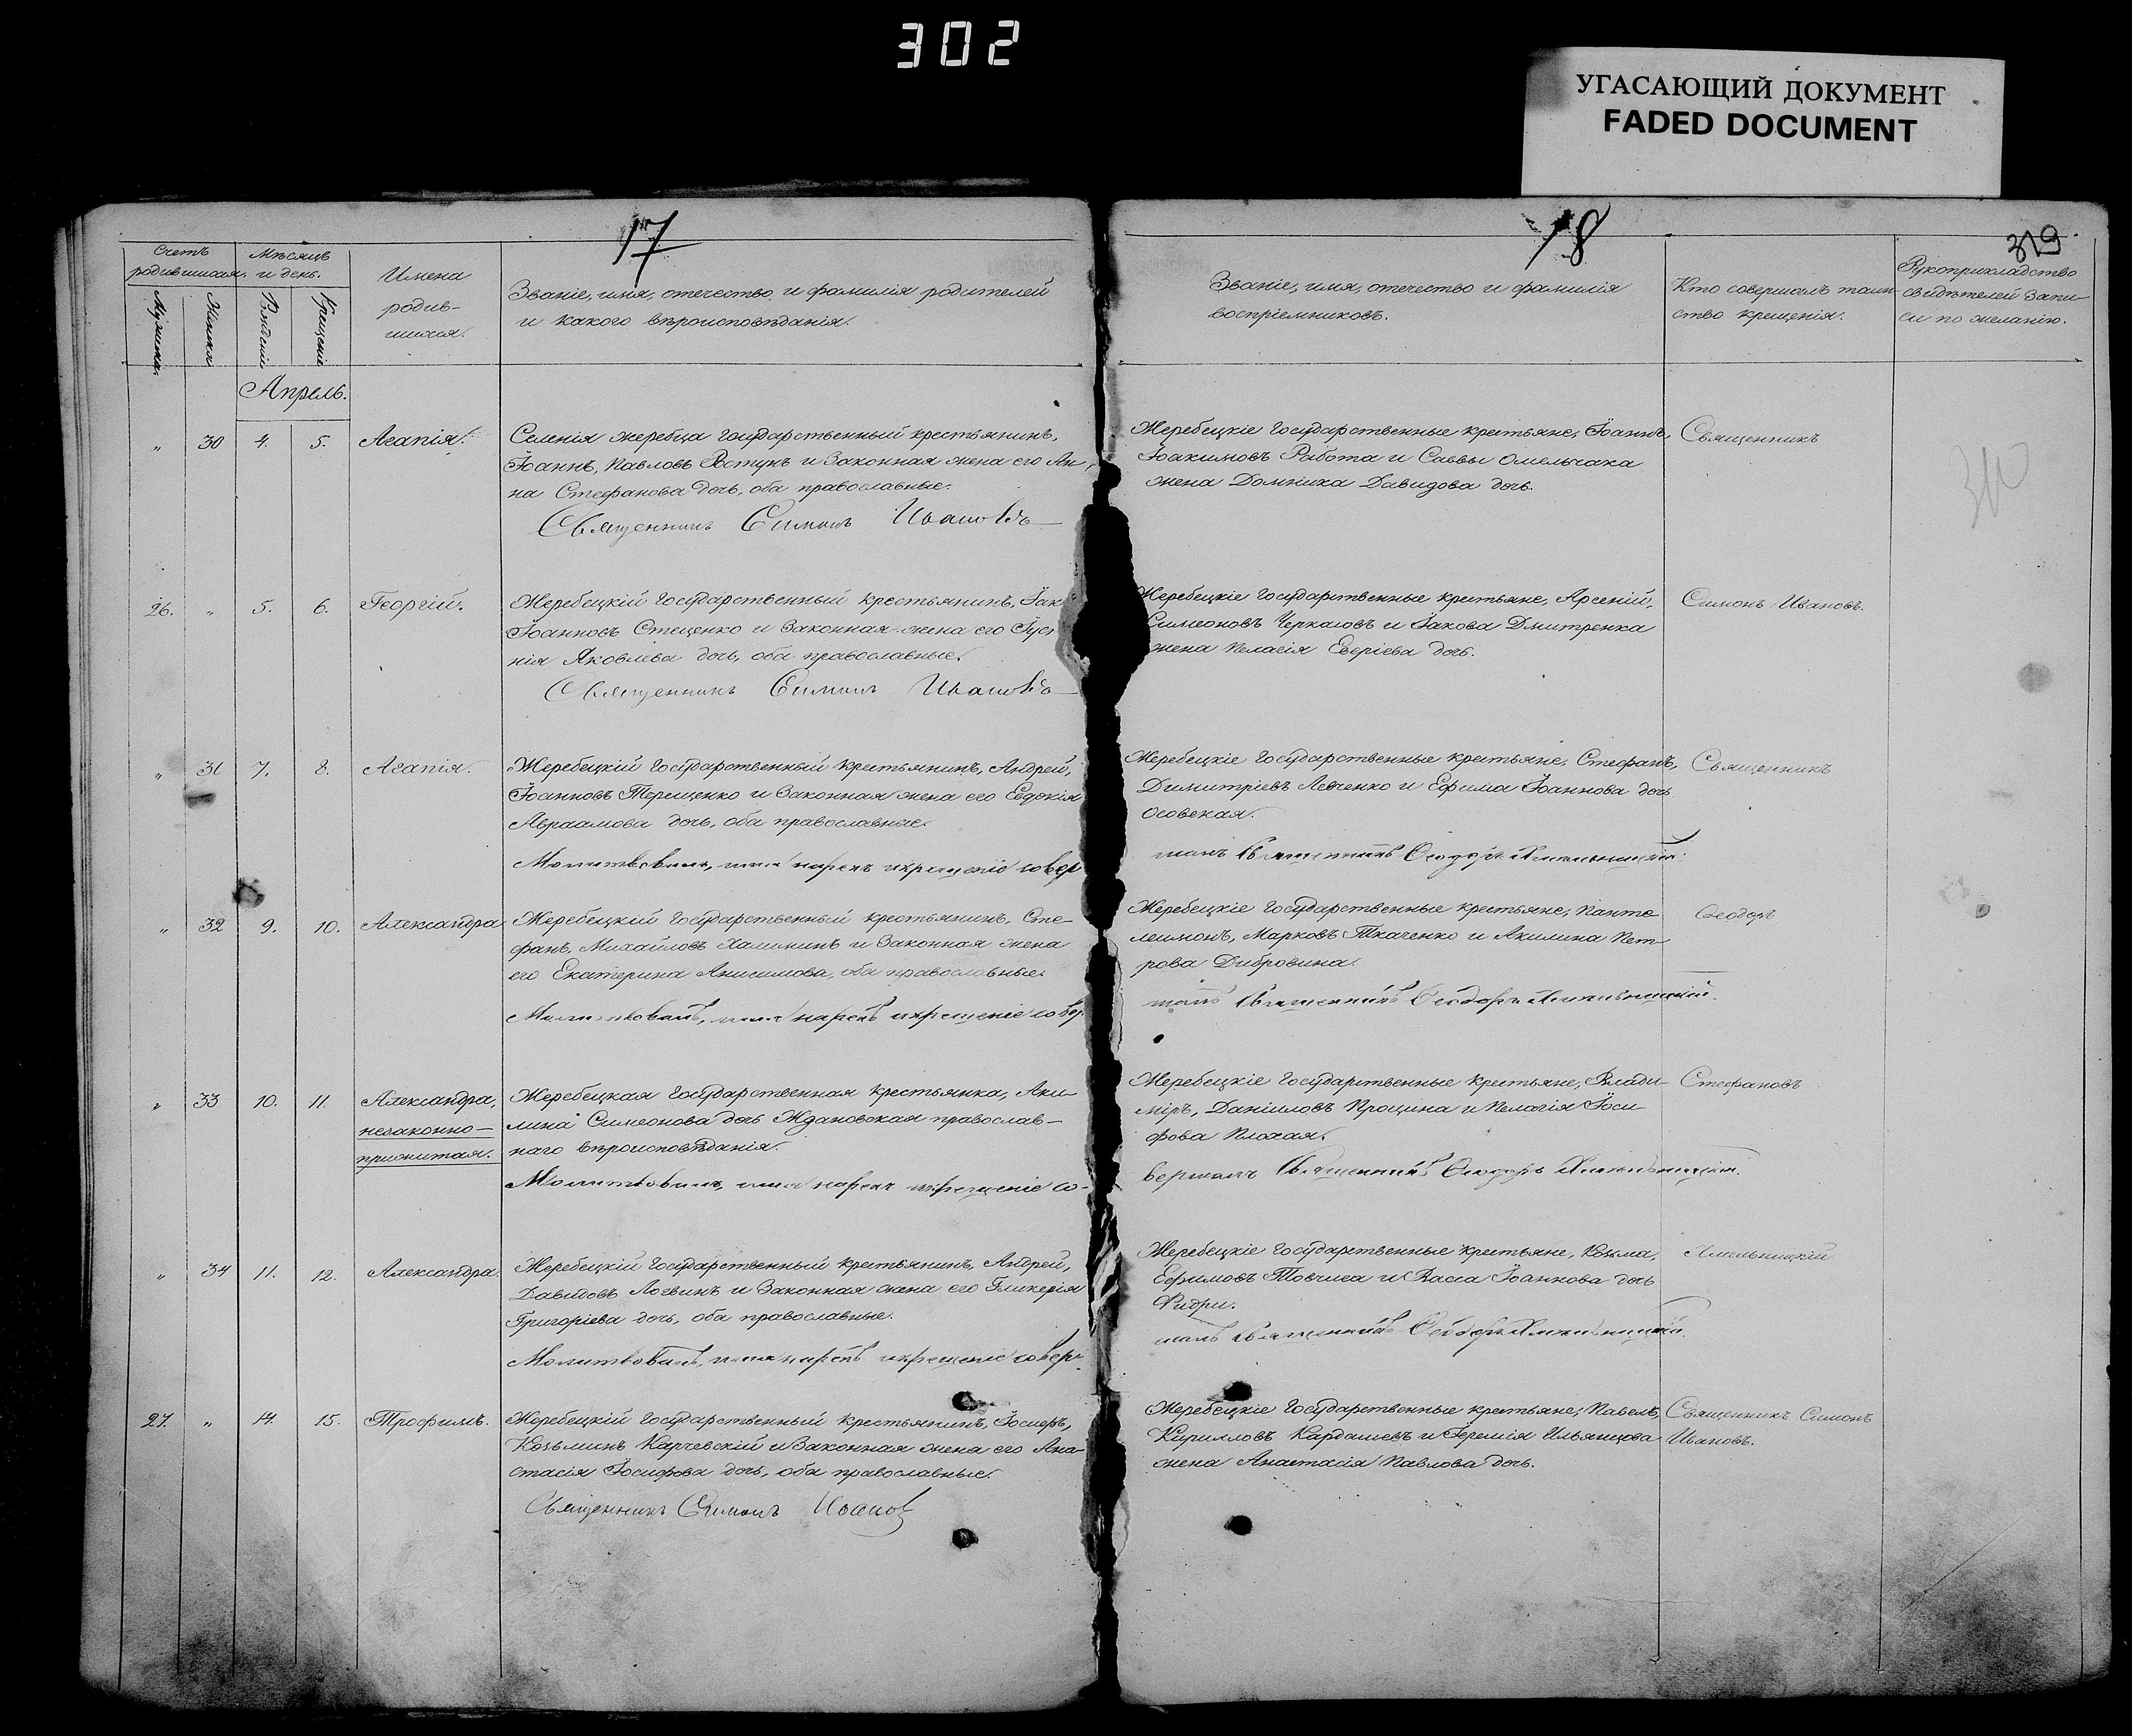 302
УГАСАЮЩИЙ ДОКУМЕНТ
FADED DOCUMENT
17
18
319
Счетъ родившихся.
Мужеска.
Женска.
Мѣсяцъ и день.
Рожденіе
Крещеніе
Имена родив-
шихся.
Званіе, имя, отечество и фамилія родителей
и какого вѣроисповѣданія.
Званіе, имя, отечество и фамилія
воспріемниковъ.
Кто совершалъ таин-
ство крещенія.
Рукоприкладство
свидѣтелей запи-
си по желанію.
Апрель.
„ 30 4. 5. Агапія.
Селенія жеребца государственный крестьянинъ,
Іоаннъ, Павловъ Востунъ и законная жена его Ан-
на Стефанова дочь, оба православные.
Священникъ Симонъ Ивановъ
Жеребецкіе государственные крестьяне, Іоаннъ,
Іоакимовъ Работа и Саввы Омельчака
жена Домника Давидова дочь.
Священникъ
310
26. „ 5. 6. Георгій.
Жеребецкій государственный крестьянинъ,
Іоанновъ Стеценко и законная жена его
нія Яковлева дочь, оба православные.
Священникъ Симонъ Ивановъ
Жеребецкіе государственные крестьяне, Арсеній,
Симеоновъ Черкасовъ и Іакова Дмитренка
жена Пелагія дочь.
Симонъ Ивановъ.
„ 31 7. 8. Агапія.
Жеребецкій государственный крестьянинъ, Андрей,
Іоанновъ Терещенко и законная жена его Евдокія
Авраамова дочь, оба православные.
Молитвовалъ, имя нарекъ и крещеніе совер
Жеребецкіе государственные крестьяне, Стефанъ,
Димитріевъ Левченко и Ефима Іоаннова дочь
Осовская.
шилъ священникъ Ѳеодоръ Хмельницкій.
Священникъ
„ 32 9. 10. Александра
Жеребецкій государственный крестьянинъ, Сте-
фанъ, Михайловъ Халиминъ и законная жена
его Екатерина Анисимова, оба православные.
Молитвовалъ, имя нарекъ и крещеніе совер
Жеребецкіе государственные крестьяне, Панте
леимонъ, Марковъ Ткаченко и Акилина Пет-
рова Дибровина.
шалъ священникъ Ѳеодоръ Хмельницкій.
Ѳеодоръ
„ 33 10. 11. Александра,
незаконно-
прижитая.
Жеребецкая государственная крестьянка, Аки-
лина Симеонова дочь Ждановская православ-
наго вѣроисповѣданія.
Молитвовалъ, имя нарекъ и крещеніе со-
Жеребецкіе государственные крестьяне, Влади-
міръ, Даніиловъ Процина и Пелагія Іоси
фова Плохая.
вершалъ священникъ Ѳеодоръ Хмельницкій.
Стефановъ
„ 34 11. 12. Александра.
Жеребецкій государственный крестьянинъ, Андрей,
Давидовъ Логвинъ и законная жена его Гликерія
Григоріева дочь, оба православные.
Молитвовалъ, имя нарекъ и крещеніе совер-
Жеребецкіе государственные крестьяне, Козьма,
Ефимовъ Товчига и Васса Іоаннова дочь
шалъ священникъ Ѳеодоръ Хмельницкій.
Хмельницкій
27. „ 14. 15. Трофимъ.
Жеребецкій государственный крестьянинъ, Іосифъ,
Козьминъ Карчевскій и законная жена его Ана-
стасія Іосифова дочь, оба православные.
Священникъ Симонъ Ивановъ
Жеребецкіе государственные крестьяне, Павелъ,
Кирилловъ Кардашевъ и Іеремія Ильяшова
жена Анастасія Павлова дочь.
Священникъ Симонъ
Ивановъ.